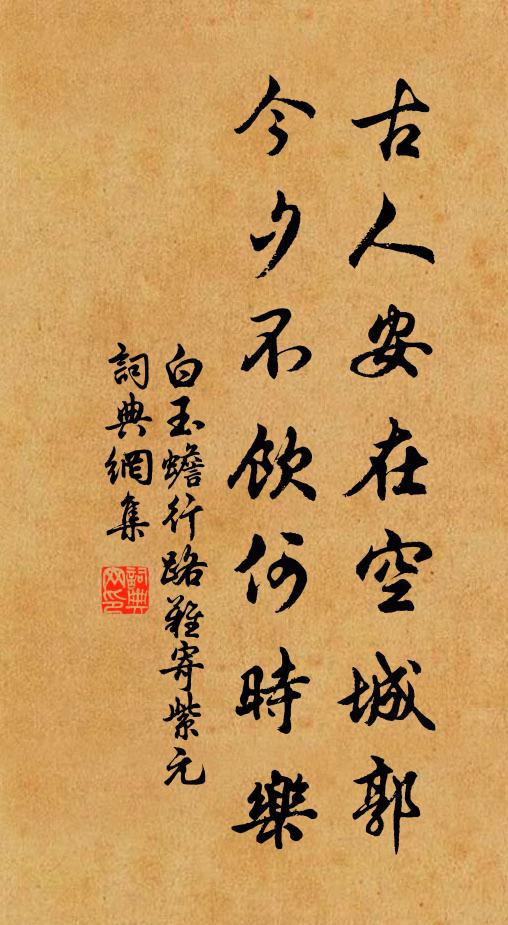 古人安在空城郭
今夕不飲何時樂
白玉蟾行路難寄紫元
詞典網集
詞典網印